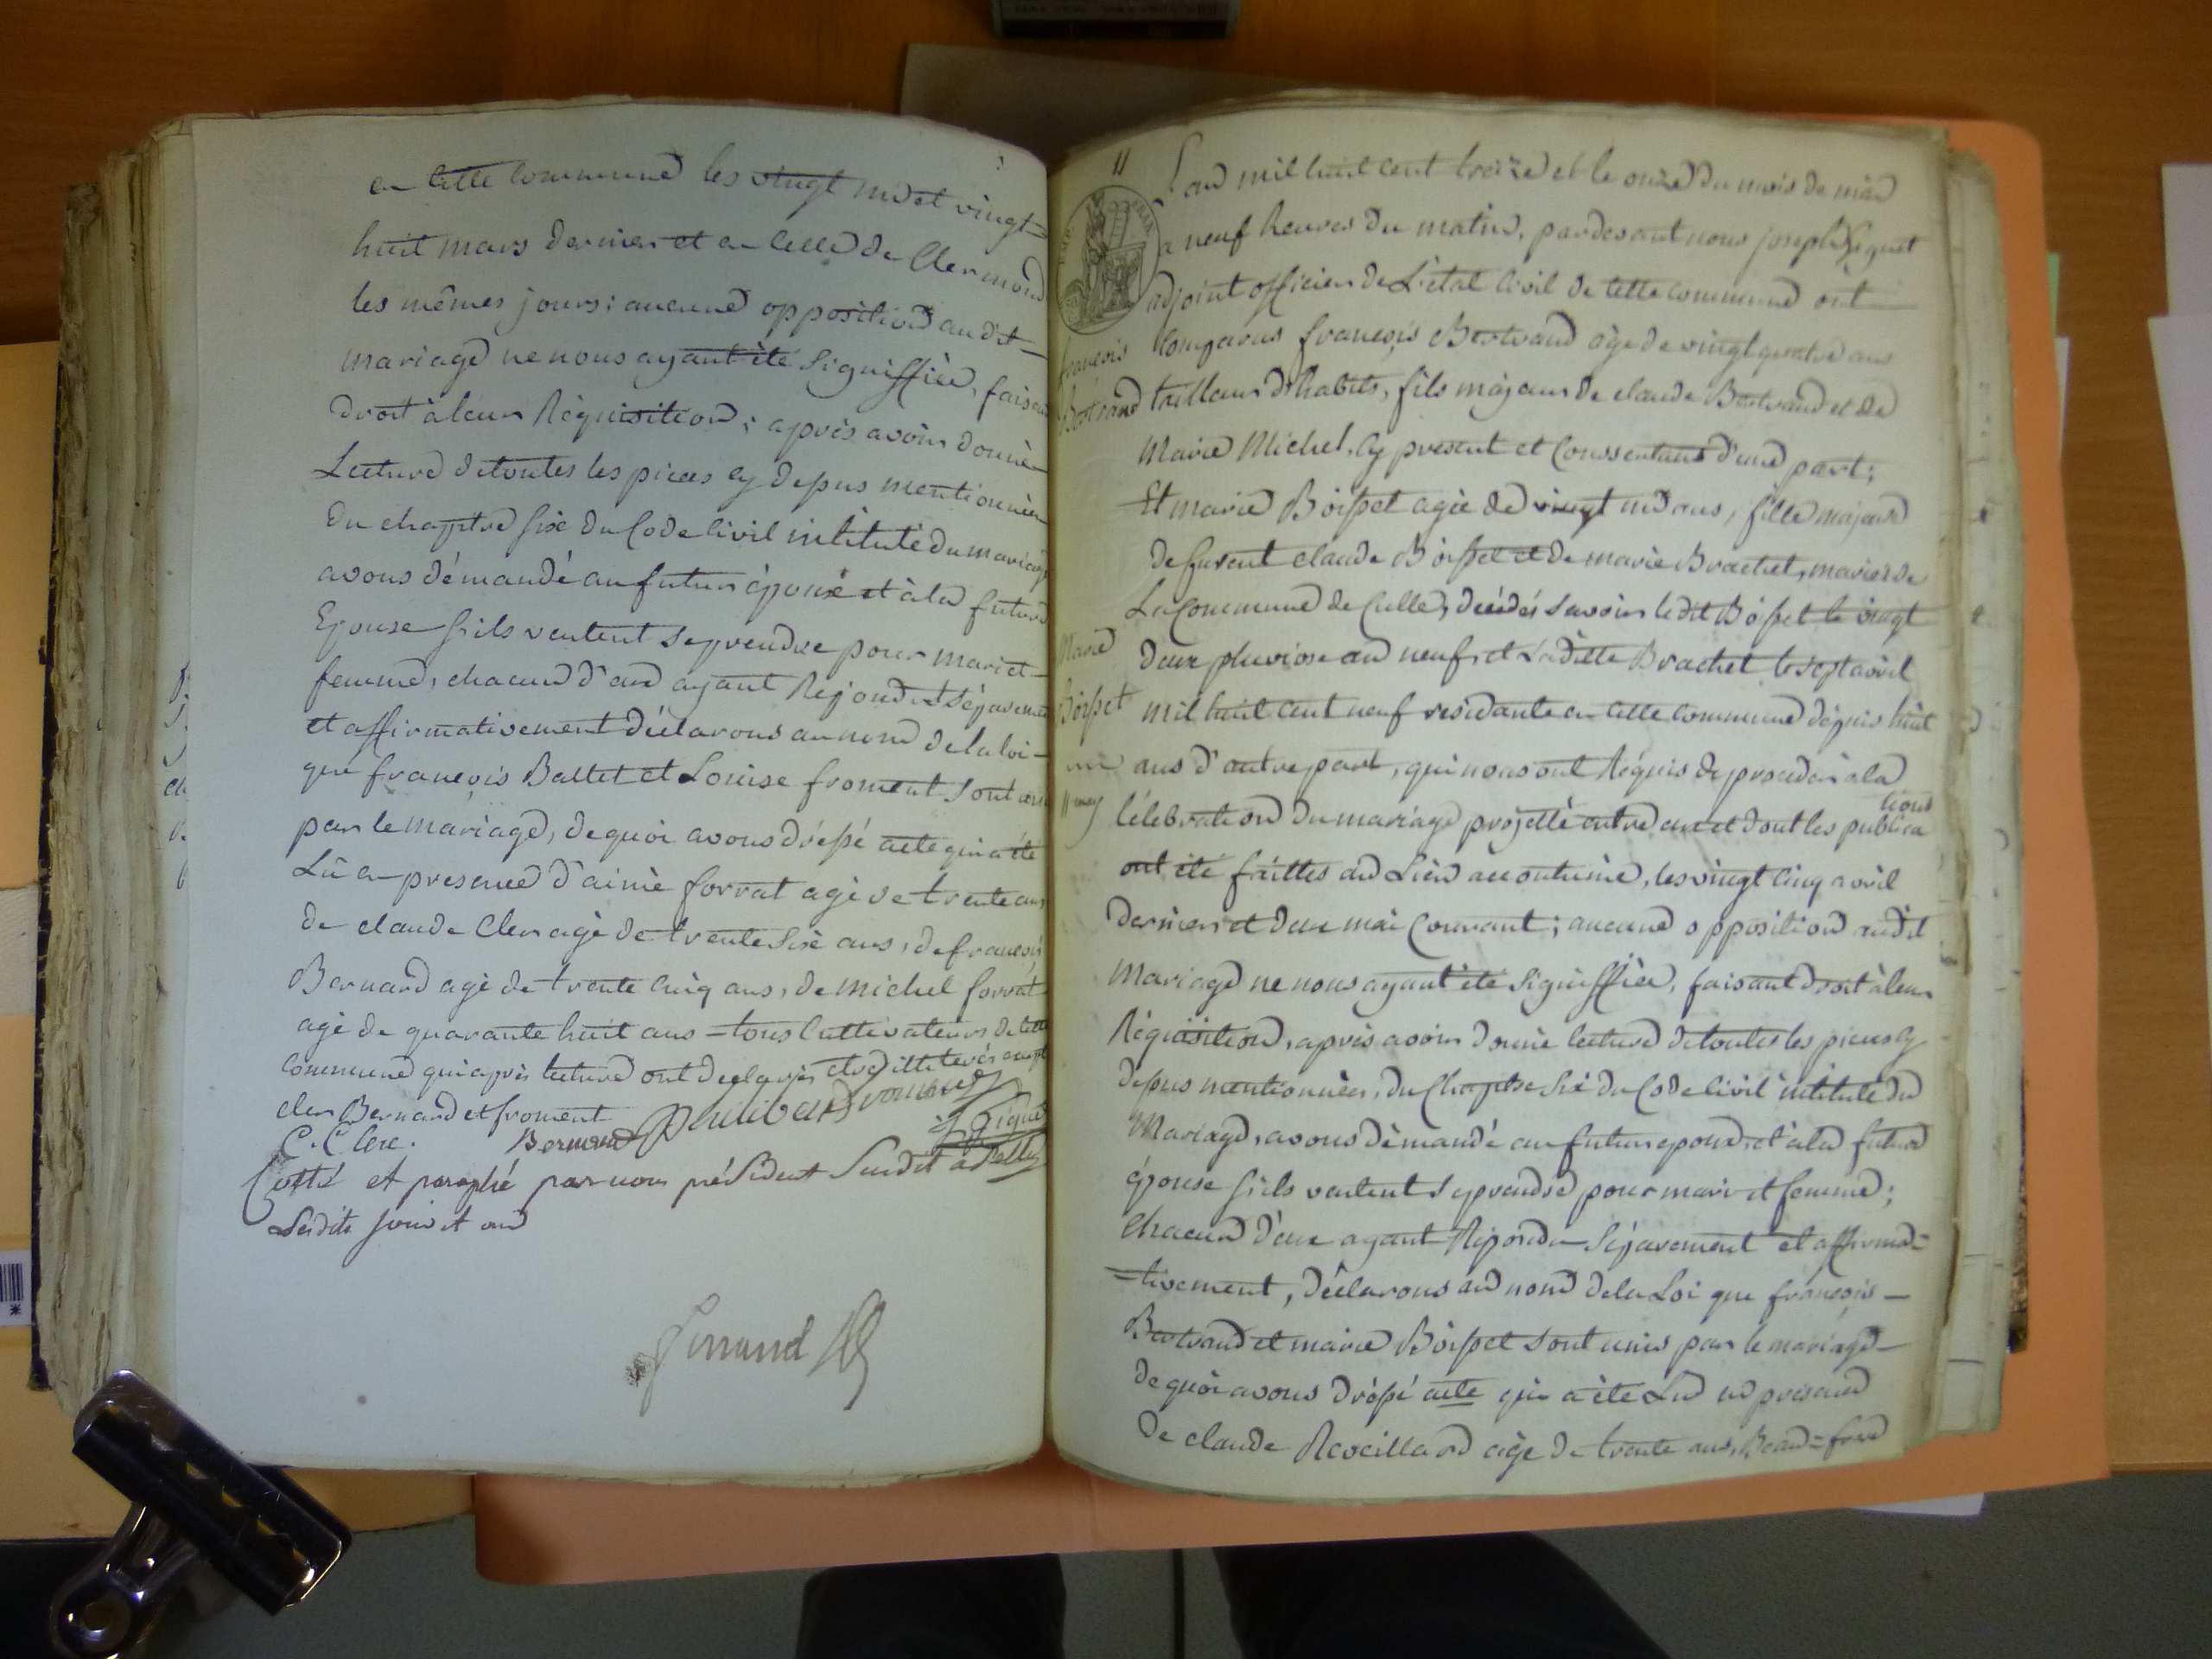 en cette commune les vingt un et vingt=
huit mars dernier et en celle de Clermond
les mêmes jours: aucune opposition audit
mariage ne nous ayant été signiffiée, faisant
droit à leur Réquisition; après avoir donné
Lecture de toutes les pièces cy dessus mentionnées
du chapitre six du Code civil intitulé du mariage
avons démandé au futur épous et à la future
Epouse s'ils veulent se prendre pour mari et
femme, chacun d'eux ayant Répondu séparément
et affirmativement déclarons au nom de la loi
que françois Ballet et Louise froment sont unis
par le mariage, de quoi avons dréssé acte qui a été
Lu en présence d'aimé forrat agé de trente ans
de claude Clerc agé de trente six ans, de françois
Bernard agé de trente cinq ans, de michel forrat
agé de quarante huit ans tous cultivateurs de cette
commune qui après lecture ont déclarés être illiterés excepté
clerc Bernard et froment
C. Clerc. Bernard philibert fromend
J Piquet
Cotté et paraphé par nous président susdit à Belley
Lesdits jour et an
11
L'and mil huit cent treize et le onze du mois de mai
à neuf heures du matin, pardevant nous joseph Piquet
adjoint officier de L'état civil de cette commune ont
comparus françois Bertrand agé de vingt quatre ans
tailleur d'habits, fils majeur de claude Bertrand et de
Marie Michel, cy présent et conssentans d'une part;
Et marie Boisset agée de vingt un ans, fille majeure
de fusent claude Boisset et de marie Brachet, mariés de
La Commune de Culle, décédés savoir ledit Boisset le vingt
deux pluviose an neuf, et Ladite Brachet le sept avril
mil huit cent neuf résidante en cette commune dépuis huit
ans d'autre part, qui nous ont Réquis de procéder à la
célébration du mariage projetté entre eux et dont les publications
ont été faittes au Lieu accoutumé, les vingt cinq avril
dernier et deux mai courant; aucune opposition audit
mariage ne nous ayant été signiffiée, faisant droit à leur
Réquisition, après avoir donné lecture de toutes les pièces cy
dessus mentionnées, du Chapitre six du Code civil intitulé du
Mariage, avons démandé au futur epoux, et à la future
épouse s'ils veulent se prendre pour mari et femme;
Chacun d'eux ayant Répondu séparement et affirma=
=tivement, déclarons au nom de la Loi que françois
Bertrand et marie Boisset sont unis par le mariage
de quoi avons dréssé acte qui a été Lu en présence
de claude Reveillard agé de trente ans, Beau=frere
françois
Bertrand
Marie
Boisset
11 may